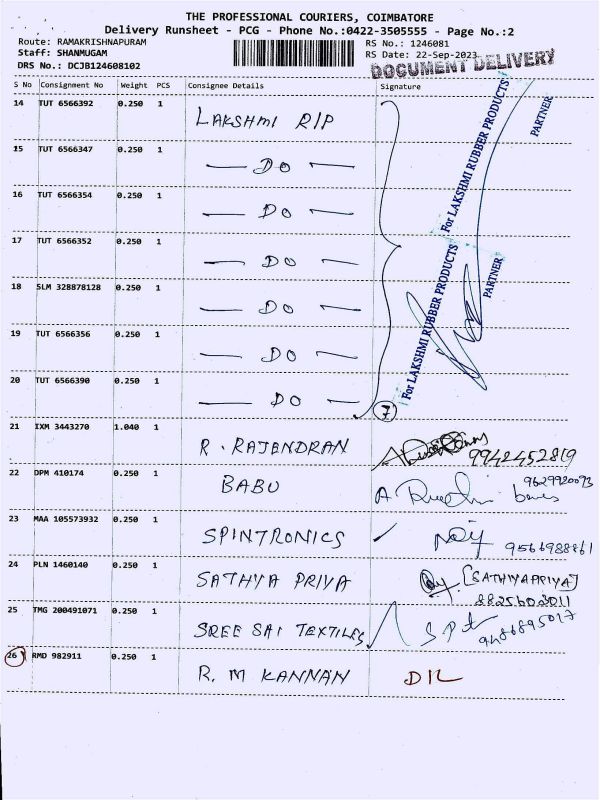 THE PROFESSIONAL COURIERS, COIMBATORE
Delivery Runsheet - PCG - Phone No.:0422-3505555 - Page No.:2
Route: RAMAKRISHNAPURAM RS No.: 1246081
Staff: SHANMUGAM RS Date: 22-Sep-2023
DRS No.: DCJB124608102 DOCUMENT DELIVERY
S No Consignment No Weight PCS Consignee Details Signature
14 TUT 6566392 0.250 1 LAKSHMI R/P
15 TUT 6566347 0.250 1 — DO —
16 TUT 6566354 0.250 1 — DO —
17 TUT 6566352 0.250 1 — DO —
18 SLM 328878128 0.250 1 — DO —
19 TUT 6566356 0.250 1 — DO —
20 TUT 6566390 0.250 1 — DO — 7
For LAKSHMI RUBBER PRODUCTS
PARTNER
For LAKSHMI RUBBER PRODUCTS
PARTNER
21 IXM 3443270 1.040 1 R. RAJENDRAN 9942452819
22 DPM 410174 0.250 1 BABU
23 MAA 105573932 0.250 1 SPINTRONICS 9566988861
24 PLN 1460140 0.250 1 SATHYA PRIYA [SATHIYAPRIYA]
25 TMG 200491071 0.250 1 SREE SAI TEXTILES
26 RMD 982911 0.250 1 R. M KANNAN DIL